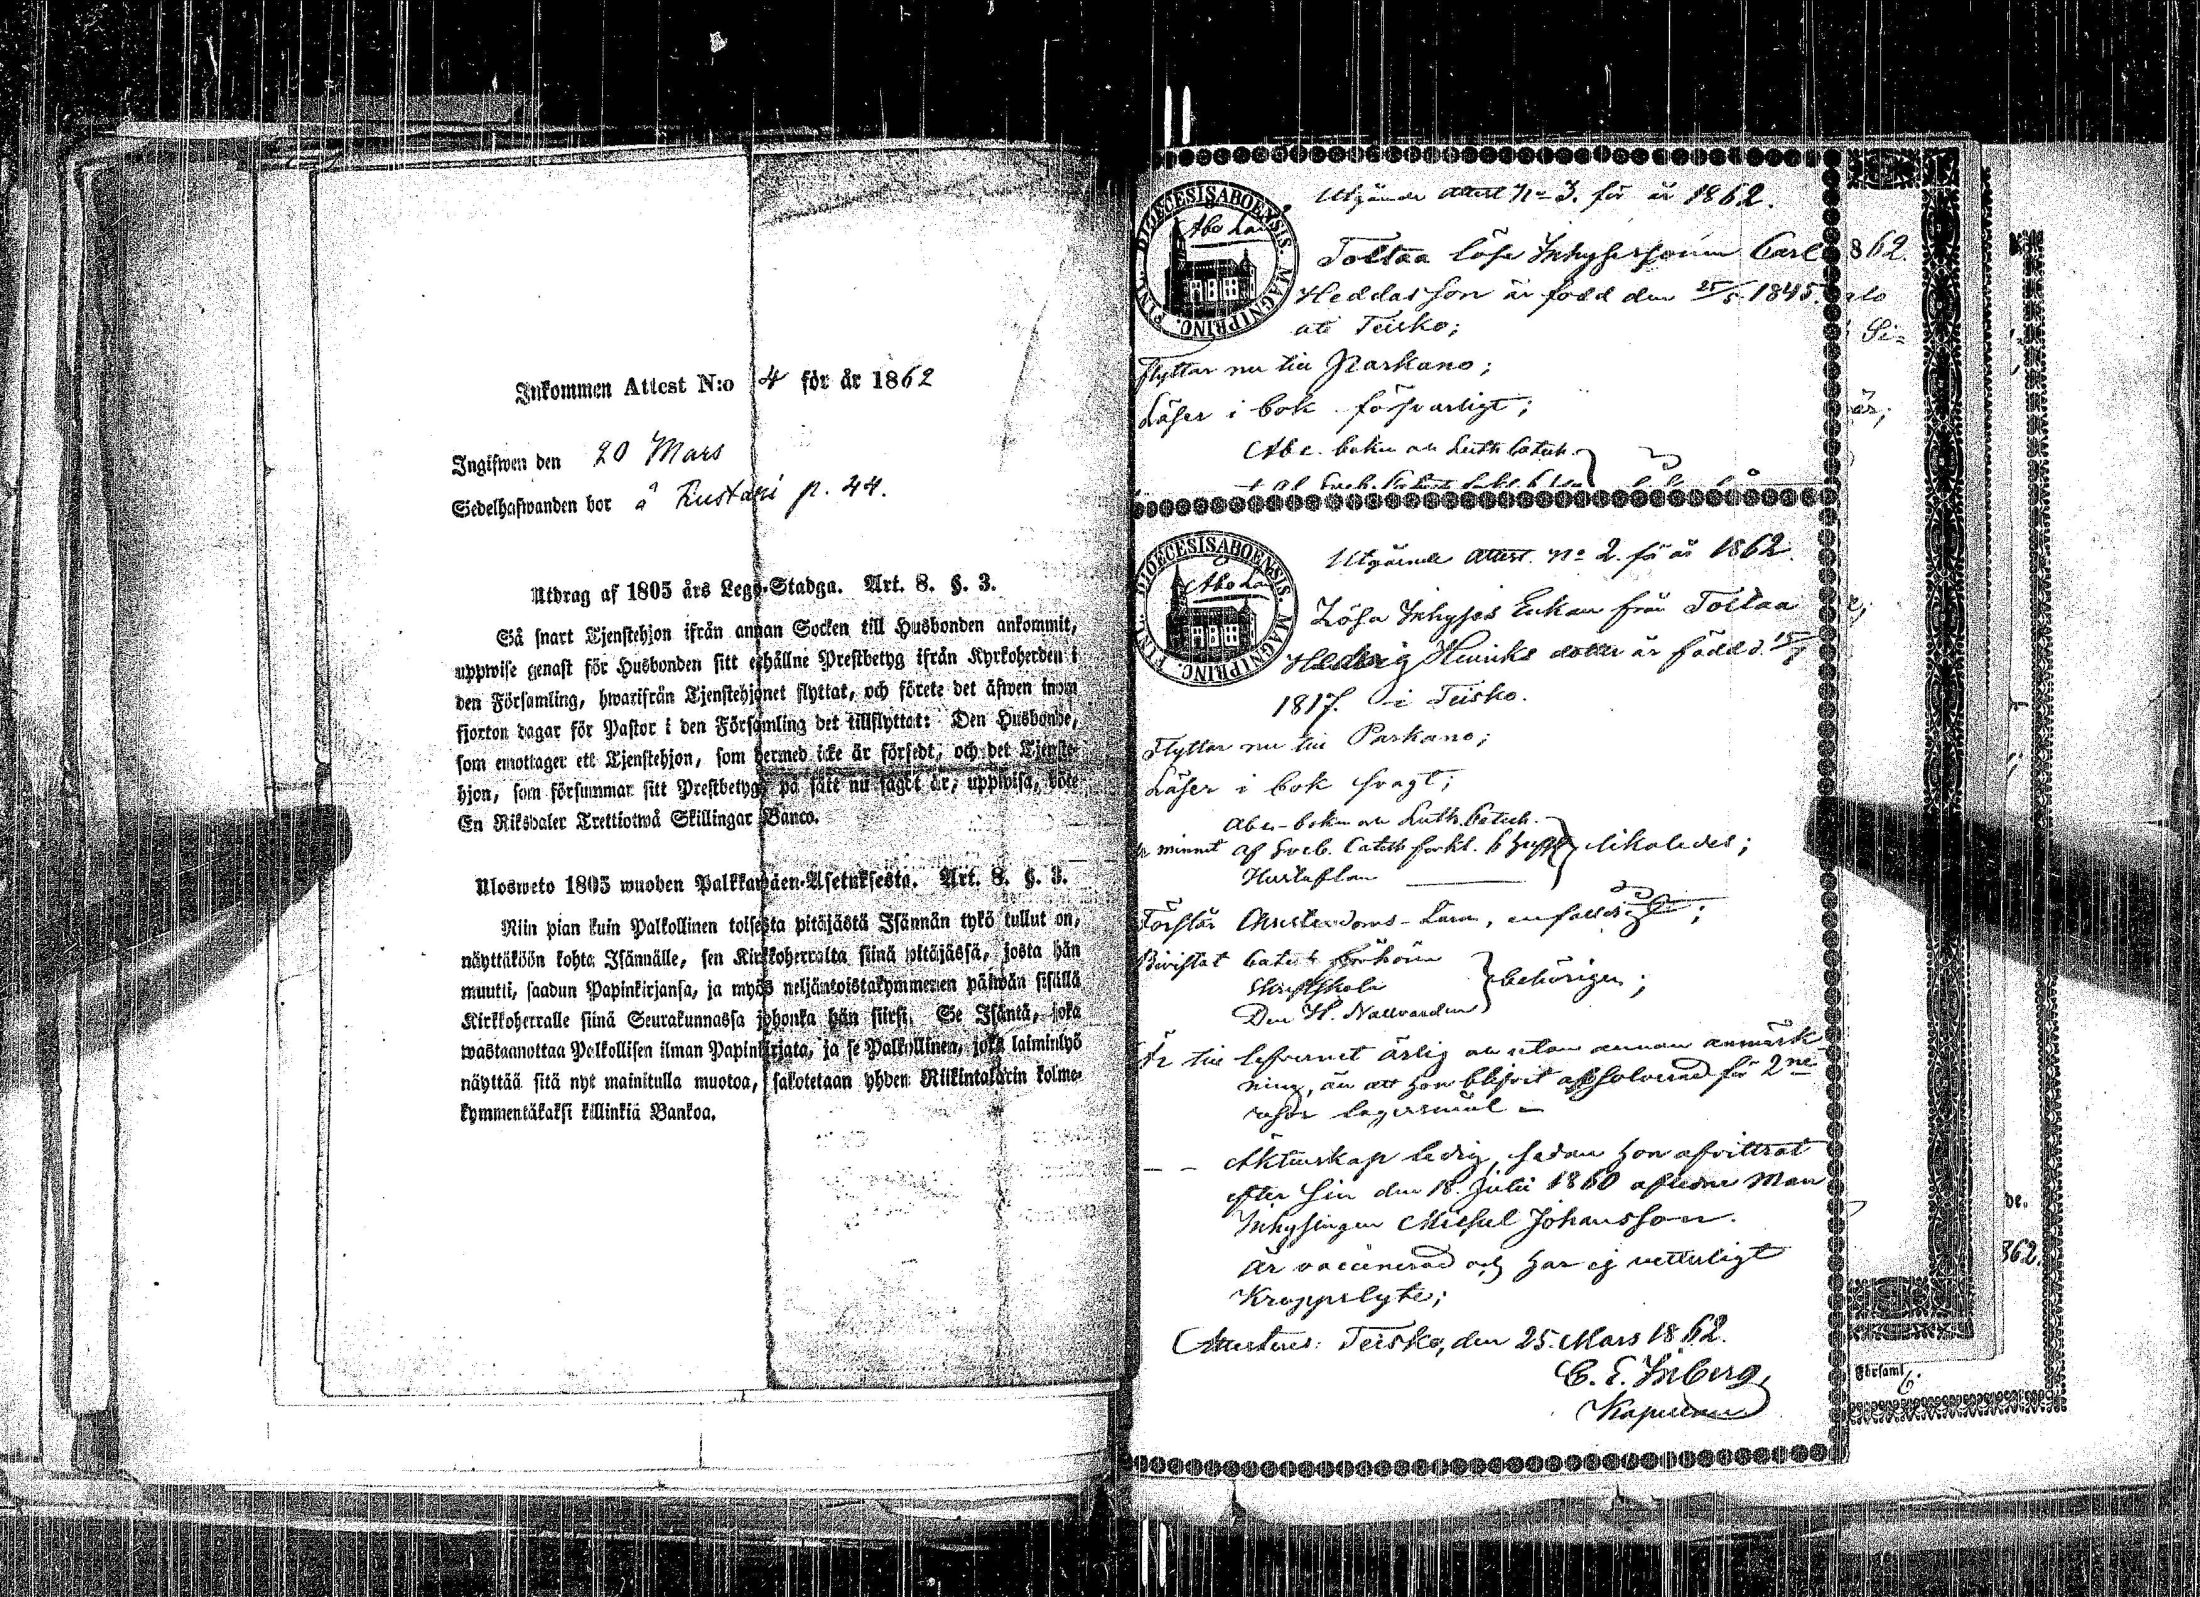 Inkommen Attest N:o 4 för år 1862
Ingifwen den 20 Mars
Sedelhafwanden bor å Kustasi p. 44.
Utdrag af 1805 års Lego-Stadga. Art. 8. §. 3.
Så snart Tjenstehjon ifrån annan Socken till Husbonden ankommit,
uppwise genast för Husbonden sitt erhållne Prestbetyg ifrån Kyrkoherden i
den Församling, hwarifrån Tjenstehjonet flyttat, och förete det äfwen inom
fjorton dagar för Pastor i den Församling det tillflyttat: Den Husbonde,
som emottager ett Tjenstehjon, som hermed icke är försedt, och det Tjenste-
hjon, som försummar sitt Prestbetyg, på sätt nu sagdt är, uppwisa, böte
En Riksdaler Trettiotwå Skillingar Banco.
Ulosweto 1805 wuoden Palkkawäen-Asetuksesta. Art. 8. §. 3.
Niin pian kuin Palkollinen toisesta pitäjästä Isännän tykö tullut on,
näyttäköön kohta Isännälle, sen Kirkkoherralta siinä pitäjässä, josta hän
muutti, saadun Papinkirjansa, ja myös neljäntoistakymmenen päiwän sisällä
Kirkkoherralle siinä Seurakunnassa johonka hän siirsi. Se Isäntä, joka
wastaanottaa Palkollisen ilman Papinkirjata, ja se Palkollinen, joka laiminlyö
näyttää sitä nyt mainitulla muotoa, sakotetaan yhden Riikintalarin kolme-
kymmentäkaksi killinkiä Bankoa.
DIOECESIS ABOENSIS. MAGNI PRINC. FINL.
Åbo Län
Utgående attest No 3. för år 1862.
Tottaa löse Inhyses sonen Carl
Heddas son är född den 25/5 1845.
uti Teisko;
Flyttar nu till Parkano;
Läser i bok försvarligt;
Abc. boken och Luth. Catech.
862.
Si-
är;
DIOECESIS ABOENSIS. MAGNI PRINC. FINL.
Åbo Län
Utgående attest. No 2. för år 1862.
Lösa Inhyses Enkan från Tottaa
Hedvig Henriks dotter är född d. 15/7
1817. i Teisko.
Flyttar nu till Parkano;
Läser i bok svagt;
Abc-boken och Luth. Catech.
minnet af Sveb. Catech. förkl. 6 hufv. likaledes;
Hustaflan
Förstår Christendoms-Läran, enfaldigt;
Bivistat Catech. förhören
Skriftskola behörigen;
Den H. Nattvarden
Är till lefvernet ärlig och utan annan anmärk-
ning, än att hon blifvit absolverad för 2ne
resor lägersmål
Äktenskap ledig, sedan hon afvittrat
efter sin den 18. Julii 1860 aflidne Man
Inhysingen Michel Johansson.
Är vaccinerad och har ej vetterligt
Kroppslyte;
Attesteras: Teisko, den 25. Mars 1862.
C. E. Inberg,
Kapellan
de.
862.
Församl.